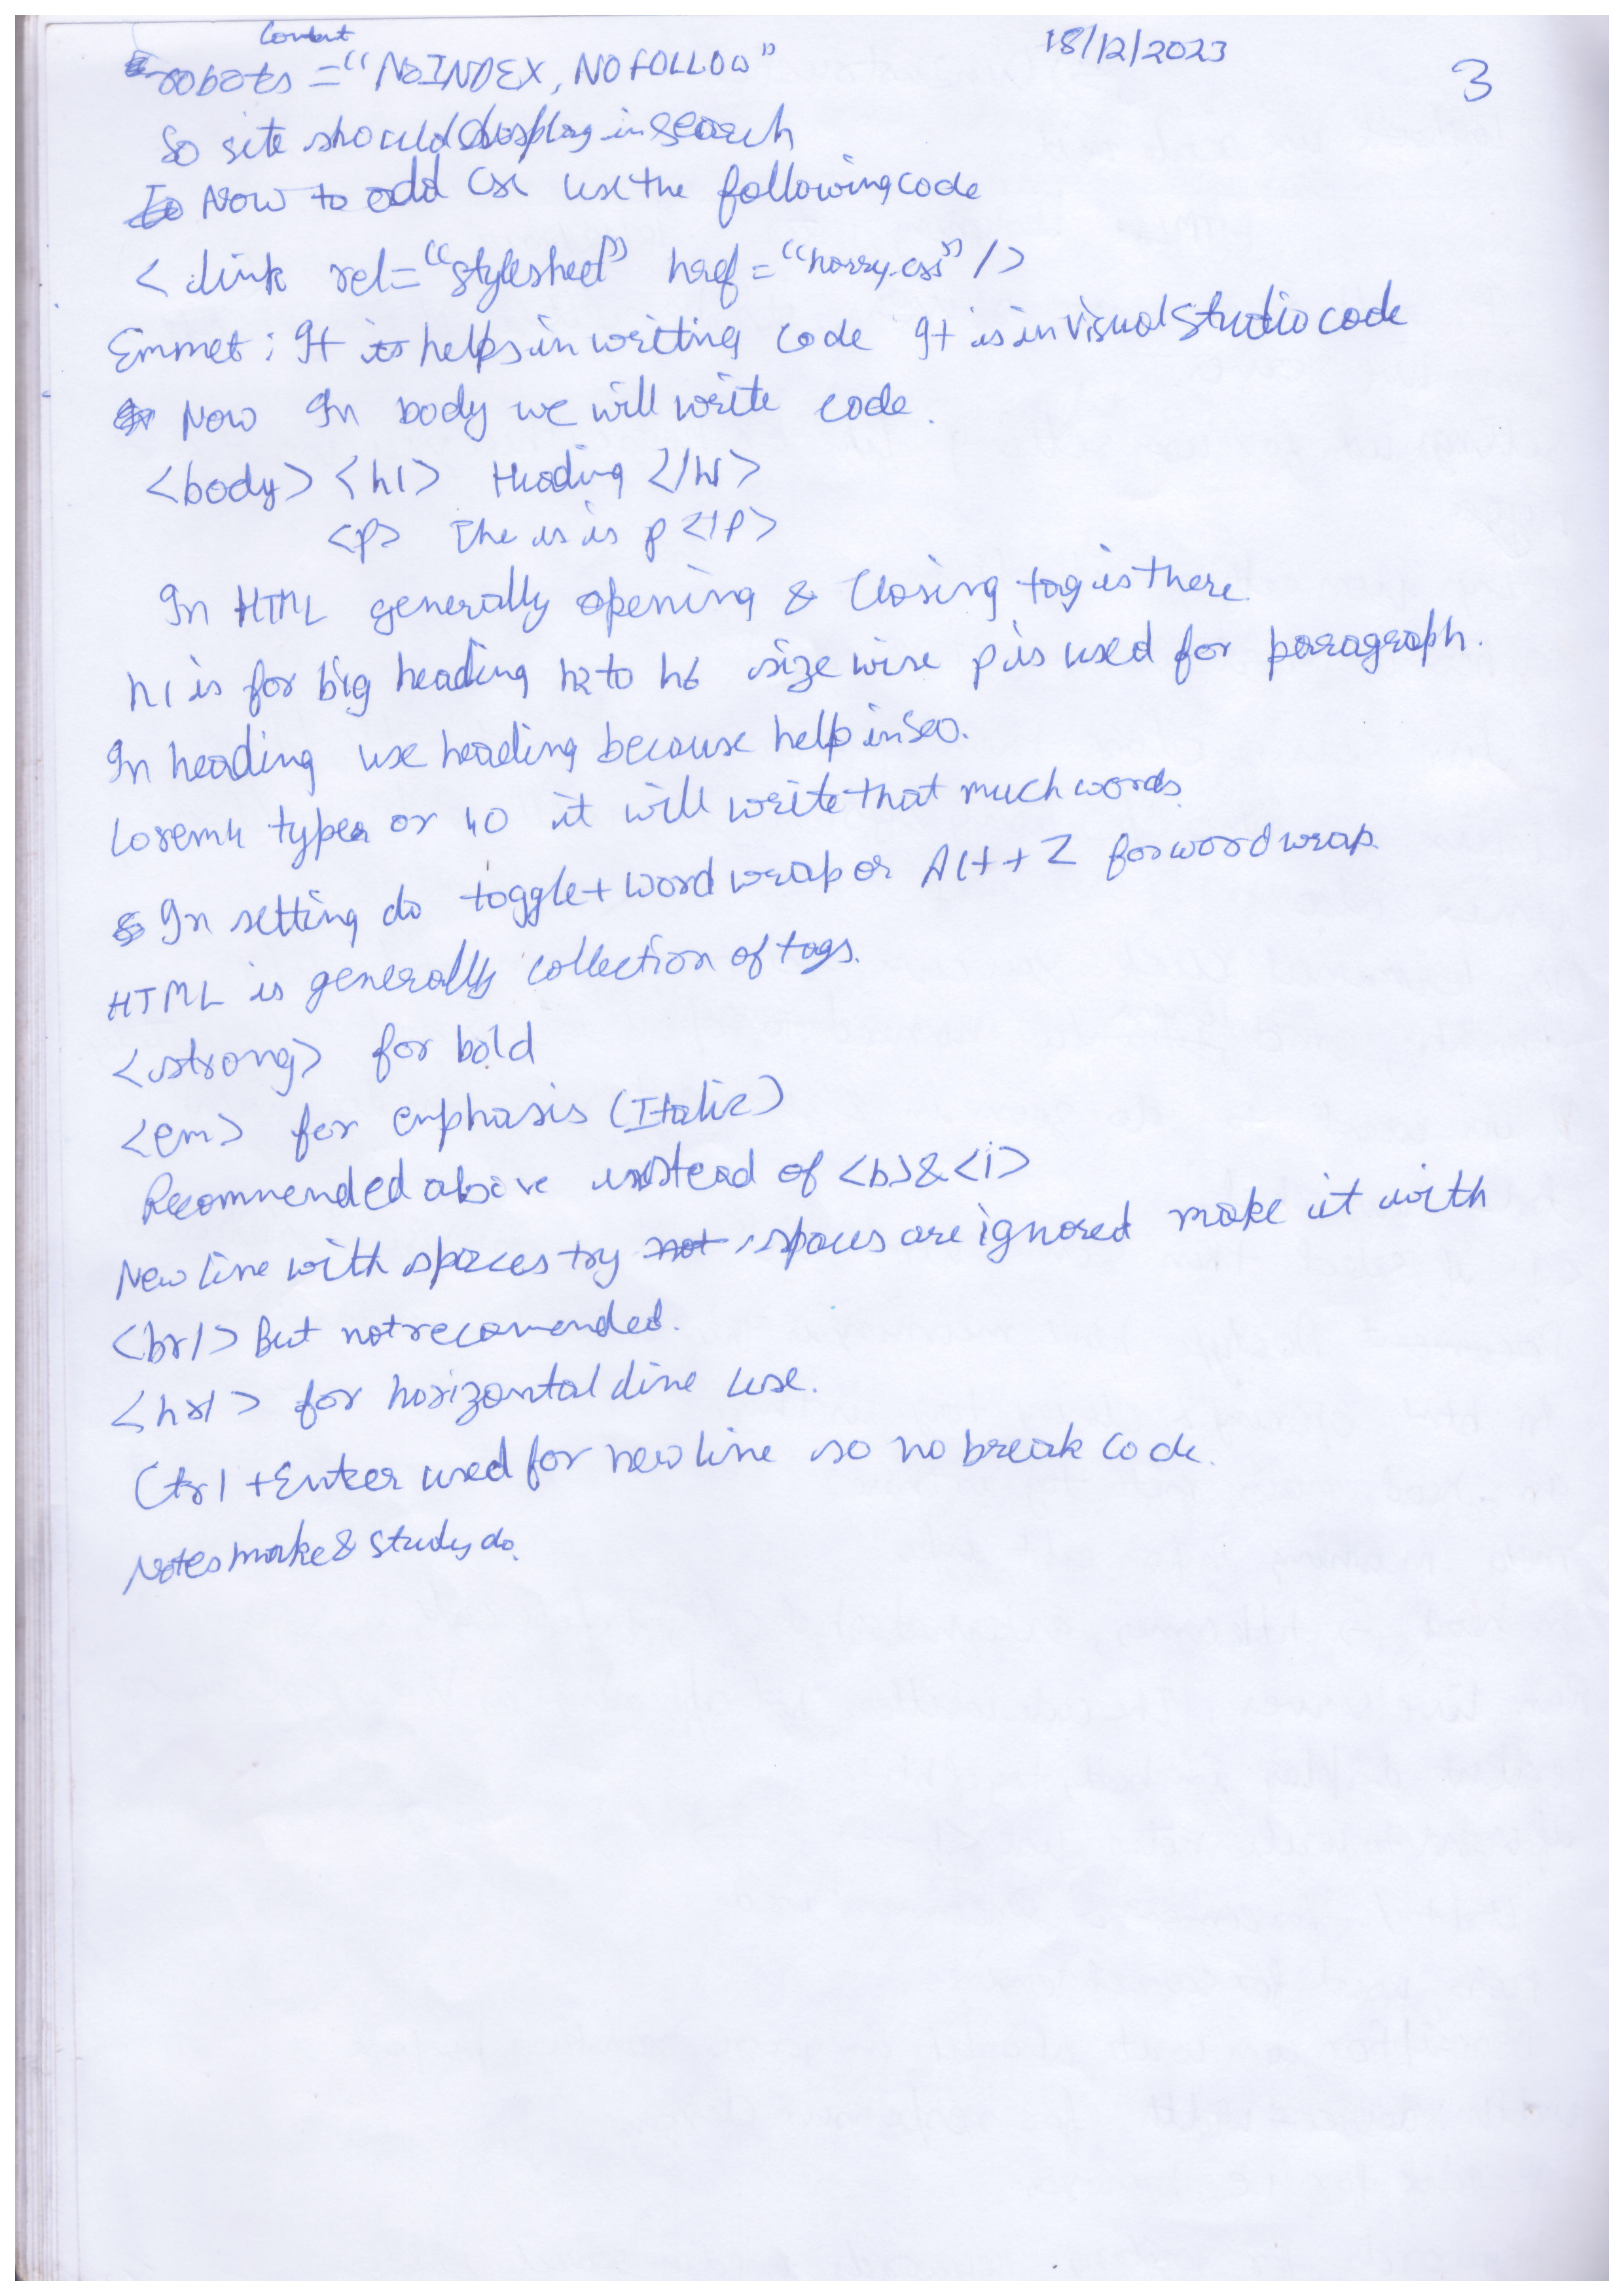 18/12/2023
3
Content
robots = "NOINDEX, NOFOLLOW"
So site should display in search
Now to add css use the following code
< link rel="stylesheet" href="harry.css" />
Emmet : It helps in writing code It is in visual studio code
Now In body we will write code.
<body> <h1> Heading </h1>
<p> The is is p </p>
In HTML generally opening & closing tag is there.
h1 is for big heading h2 to h6 size wise p is used for paragraph.
In heading use heading because help in Seo.
Lorem4 type or 40 it will write that much words.
In setting do toggle + word wrap or Alt + Z for word wrap.
HTML is generally collection of tags.
<strong> for bold
<em> for emphasis (Italic)
Recommended above instead of <b> & <i>
New line with spaces try not spaces are ignored make it with
<br/> But not recomended.
<hr/> for horizontal line use.
Ctrl + Enter used for new line so no break code.
Notes make & study do.